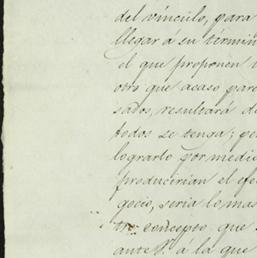 del vínculo, para
llegar á su termin
el que proponen
otro que acaso pare
sados, resultará de
todos se tenga; pe
lograrlo por medio
producirian el efe
gocio, seria lo mas
tro concepto que
ante V. á la que